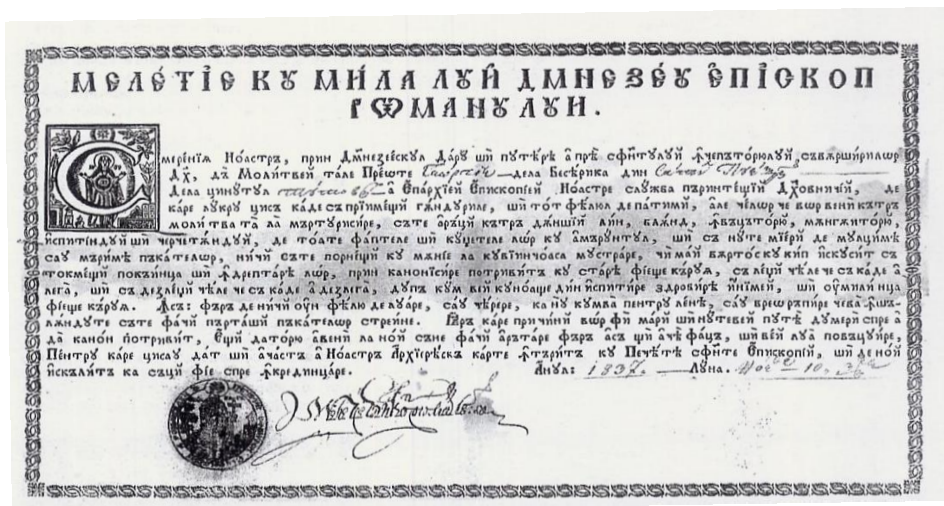 МЕЛЕТІЕ КУ МИЛА ЛУЙ ДМНЕЗЕУ ЕПІСКОП
РѠМАНУЛУИ.
Смеренїѧ Ноастръ, прин Дмнезеескул Дару ши путѣрѣ а прѣ сфнтулуй ꙟчепъторюлуй, съвърширилѡр
Дх, дъ Молитвей тале Преѡте дела Бесѣрика дин
Дела цинутул а Епархїей Епископїей Ноастре служба пъринтещїй Дховничїй, де
каре лукру цисъ каде съ прїимещй гѫндуриле, ши тот фѣлюл де патимй, але челѡр че вѡр вени кътръ
молитва та ла мъртурисире, съте аръцй кътръ дѫншїй лин, блѫнд, мѫнгѫиторю,
испитиндуй ши черчетѫндуй, де тоате фаптеле ши куцетеле лѡр ку амърунтул, ши съ нуте мїерй де мулцимѣ
сау мъримѣ пъкателѡр, ничй съте порнещй ку мѫнїе ла кувїинчоаса мустраре, чи май вѫртос ку кип искусит съ
токмещй покъинца ши ꙟдрептарѣ лѡр, прин канонисире потривитъ ку старѣ фїеще къруѧ, съ леџй чѣле че съ каде а
лега, ши съ дезлеџй чѣле че съ каде а дезлега, дупъ кум вей куноаще дин испитире здробирѣ инїмей, ши оумилинца
фїеще къруѧ. Ꙟсъ: фъръ де ничй оун фѣлю де луаре, сау чѣрере, ка ну кумва пентру лѣне, сау вре
лѫндуте съте фачй пърташй пъкателѡр стреине. Ꙗръ каре причинй вѡр фи марй ши нутевей путѣ думери спре а
да канон потривит, ещй даторю авени ла ной съне фачй арътаре фъръ а съ щи а чѣ фацъ, ши вей луа повъцуире,
Пентру каре цисау дат ши ачастъ а Ноастръ Архїерѣскъ карте ꙟтъритъ ку Печѣтѣ сфнтей Епископїй, ши де ной
искълитъ ка съцй фїе спре ꙟкрединцаре. Анул: 1837. Луна.